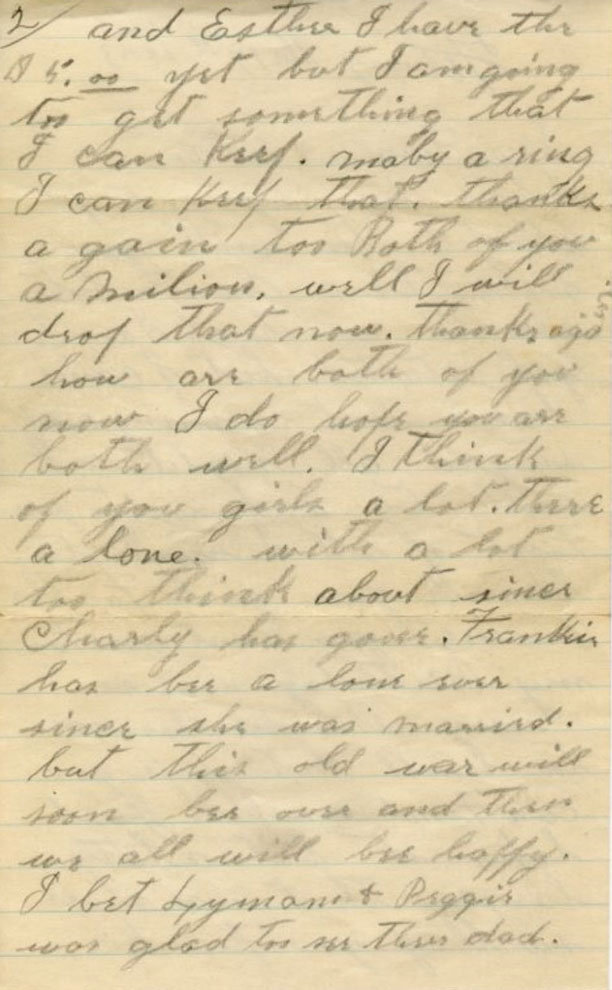 2/ and Esther I have the
$5.00 yet but I am going
too get something that
I can Keep. maby a ring
I can Keep that. thanks
a gain too Both of you
a Milion, well I will
drop that now. thanks agin
how are both of you
now I do hope you are
both well. I think
of you girls a lot. there
a lone. with a lot
too think about since
Charly has gone. Frankie
has bee a lone ever
since she was married.
but this old war will
soon bee over and then
we all will bee happy.
I bet Lyman & Peggie
was glad too see there dad.